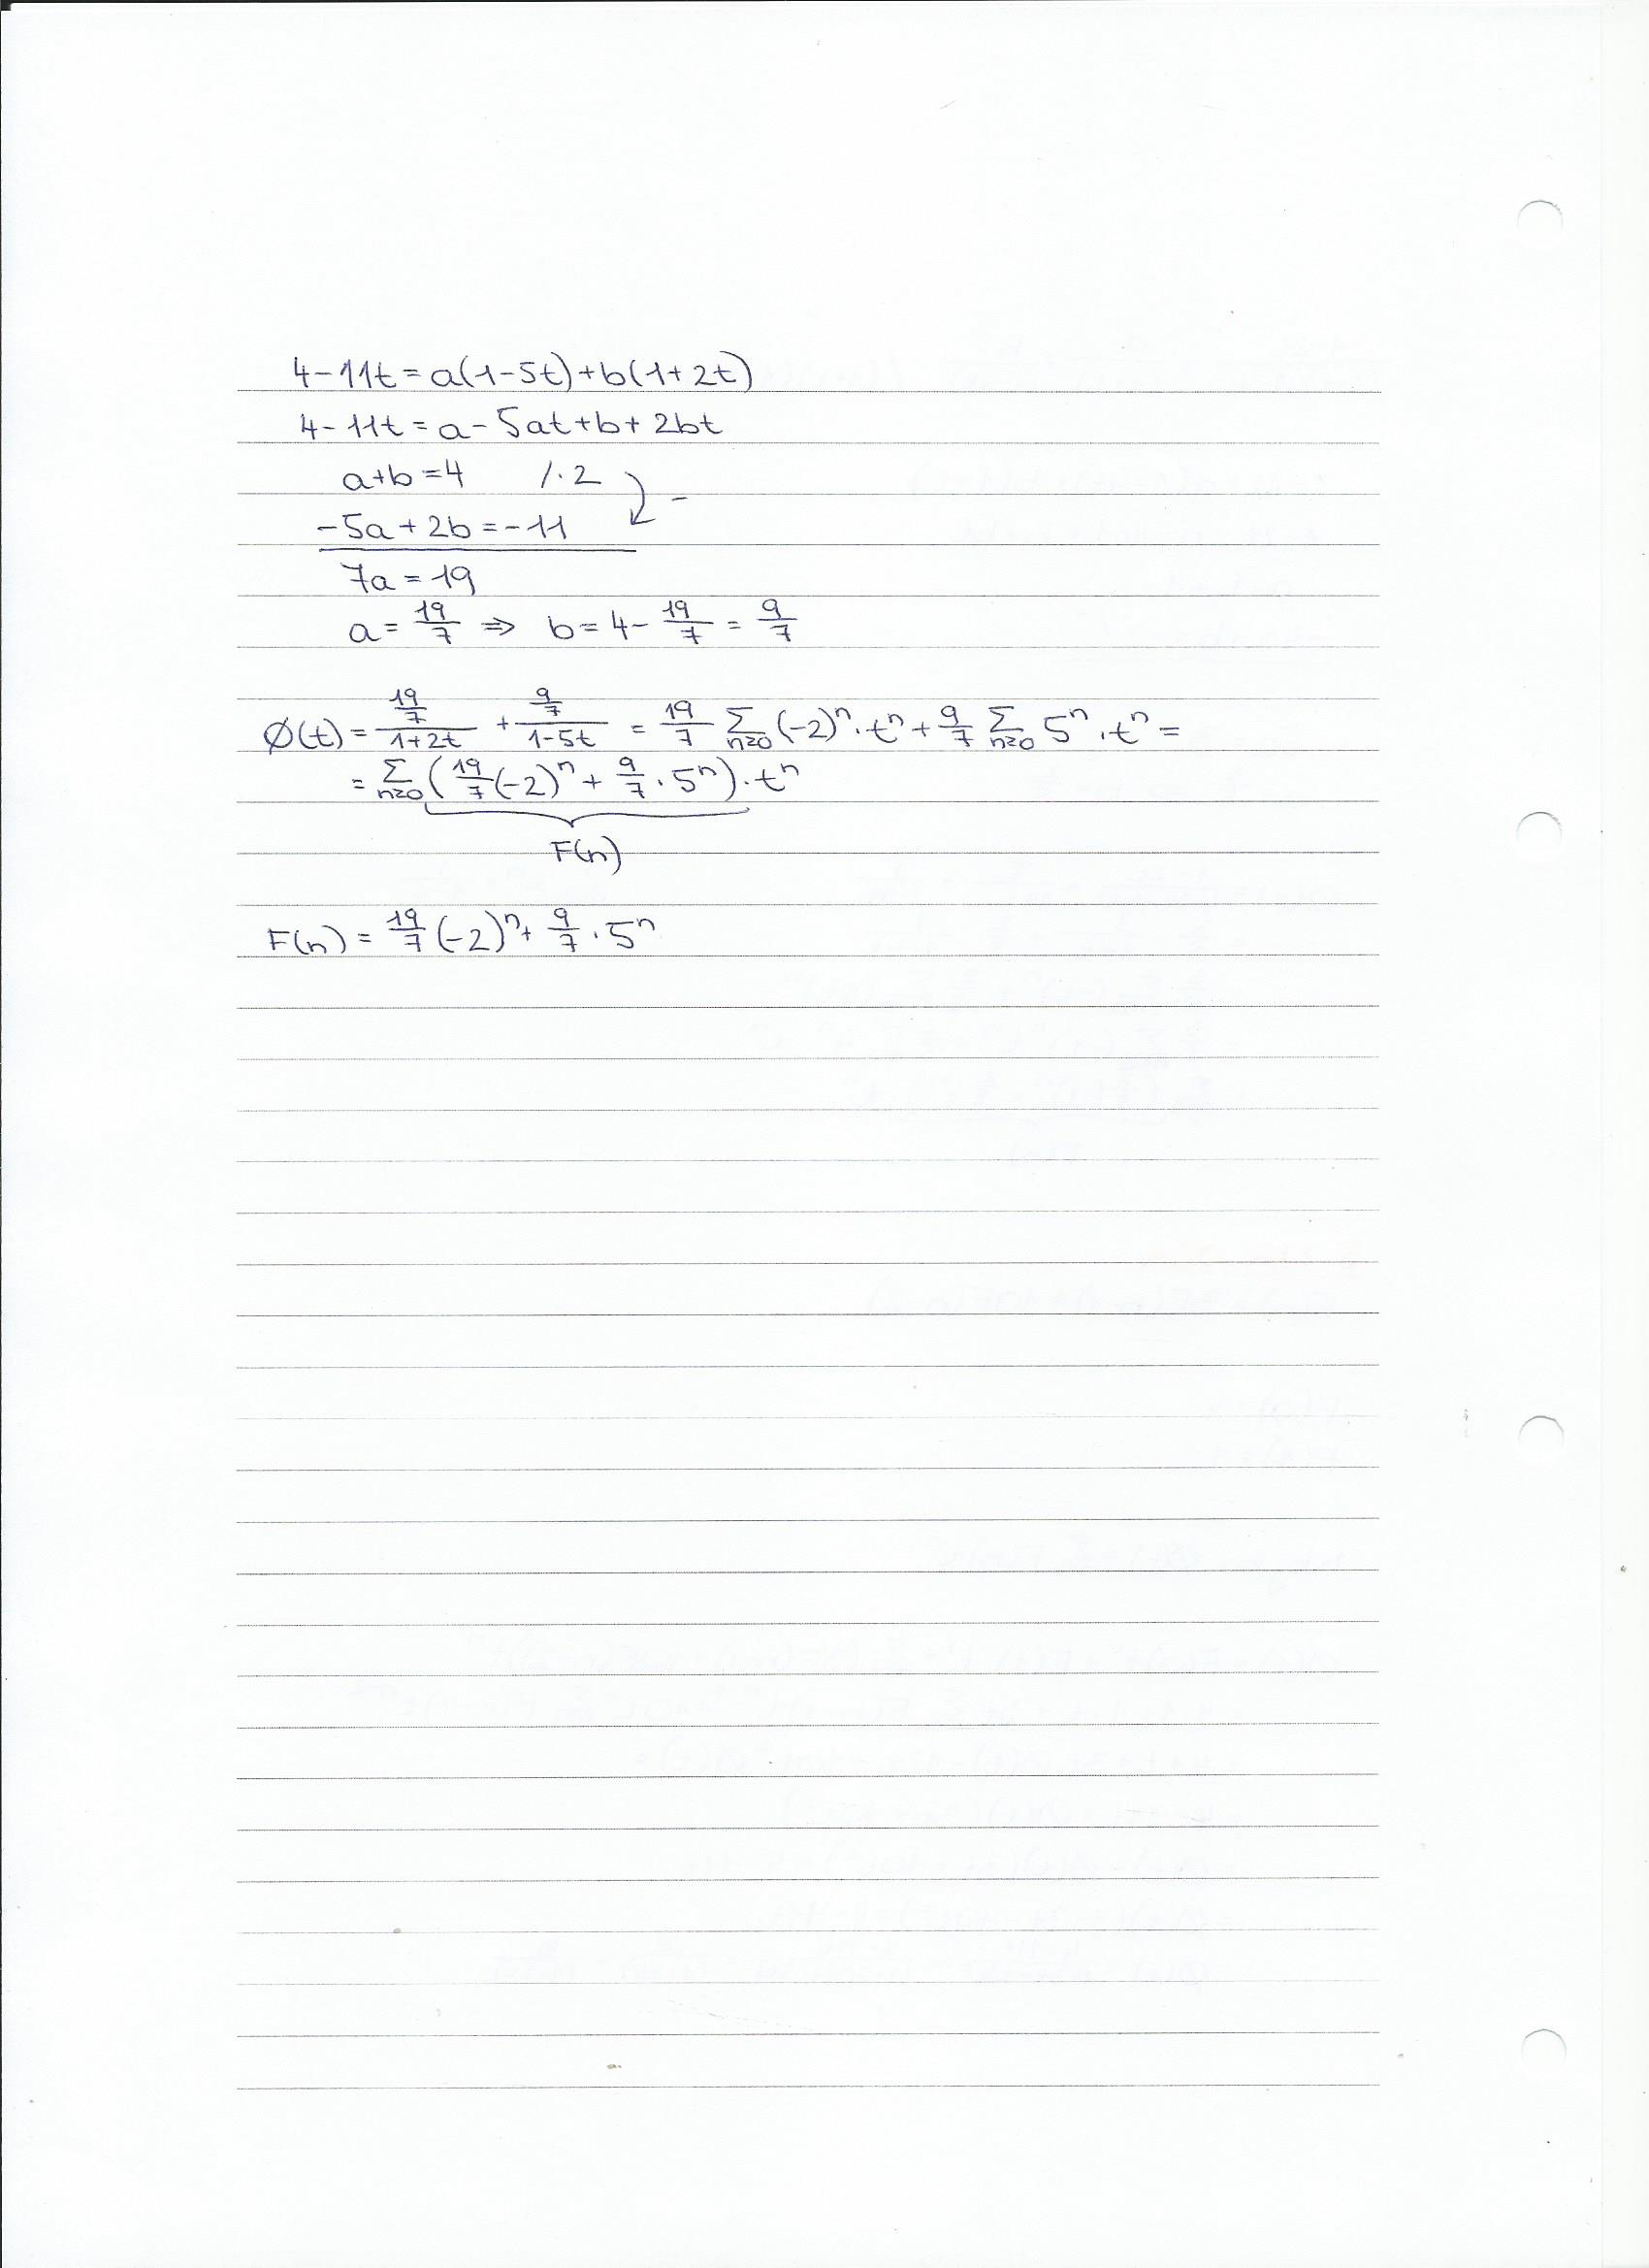 4-11t = a(1-5t)+b(1+2t)
4-11t = a-5at+b+2bt
a+b=4 /·2
-5a+2b=-11 -
7a=19
a=19/7 ⇒ b=4-19/7=9/7
Ø(t)=(19/7)/(1+2t)+(9/7)/(1-5t)=19/7 Σ_{n≥0} (-2)^n·t^n+9/7 Σ_{n≥0} 5^n·t^n=
=Σ_{n≥0}(19/7(-2)^n+9/7·5^n)·t^n
F(n)
F(n)=19/7(-2)^n+9/7·5^n